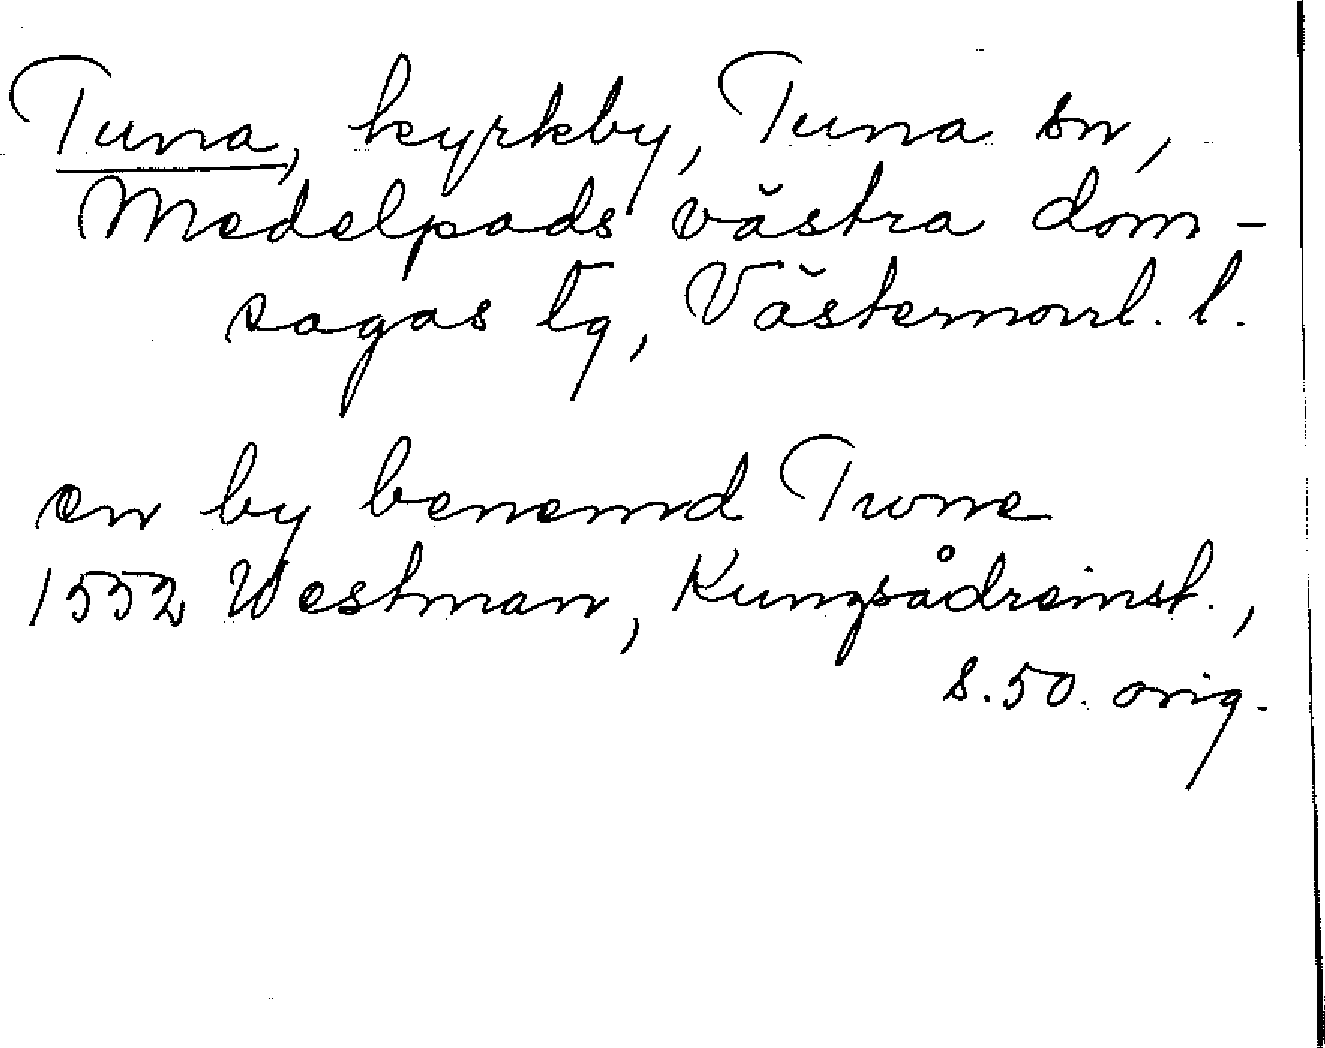 Tuna, kyrkby, Tuna sn,
Medelpads västra dom-
sagas tg, Västernorrl. l.
en by benemd Twne
1552 Westman, Kungsådreinst.,
s. 50. orig.